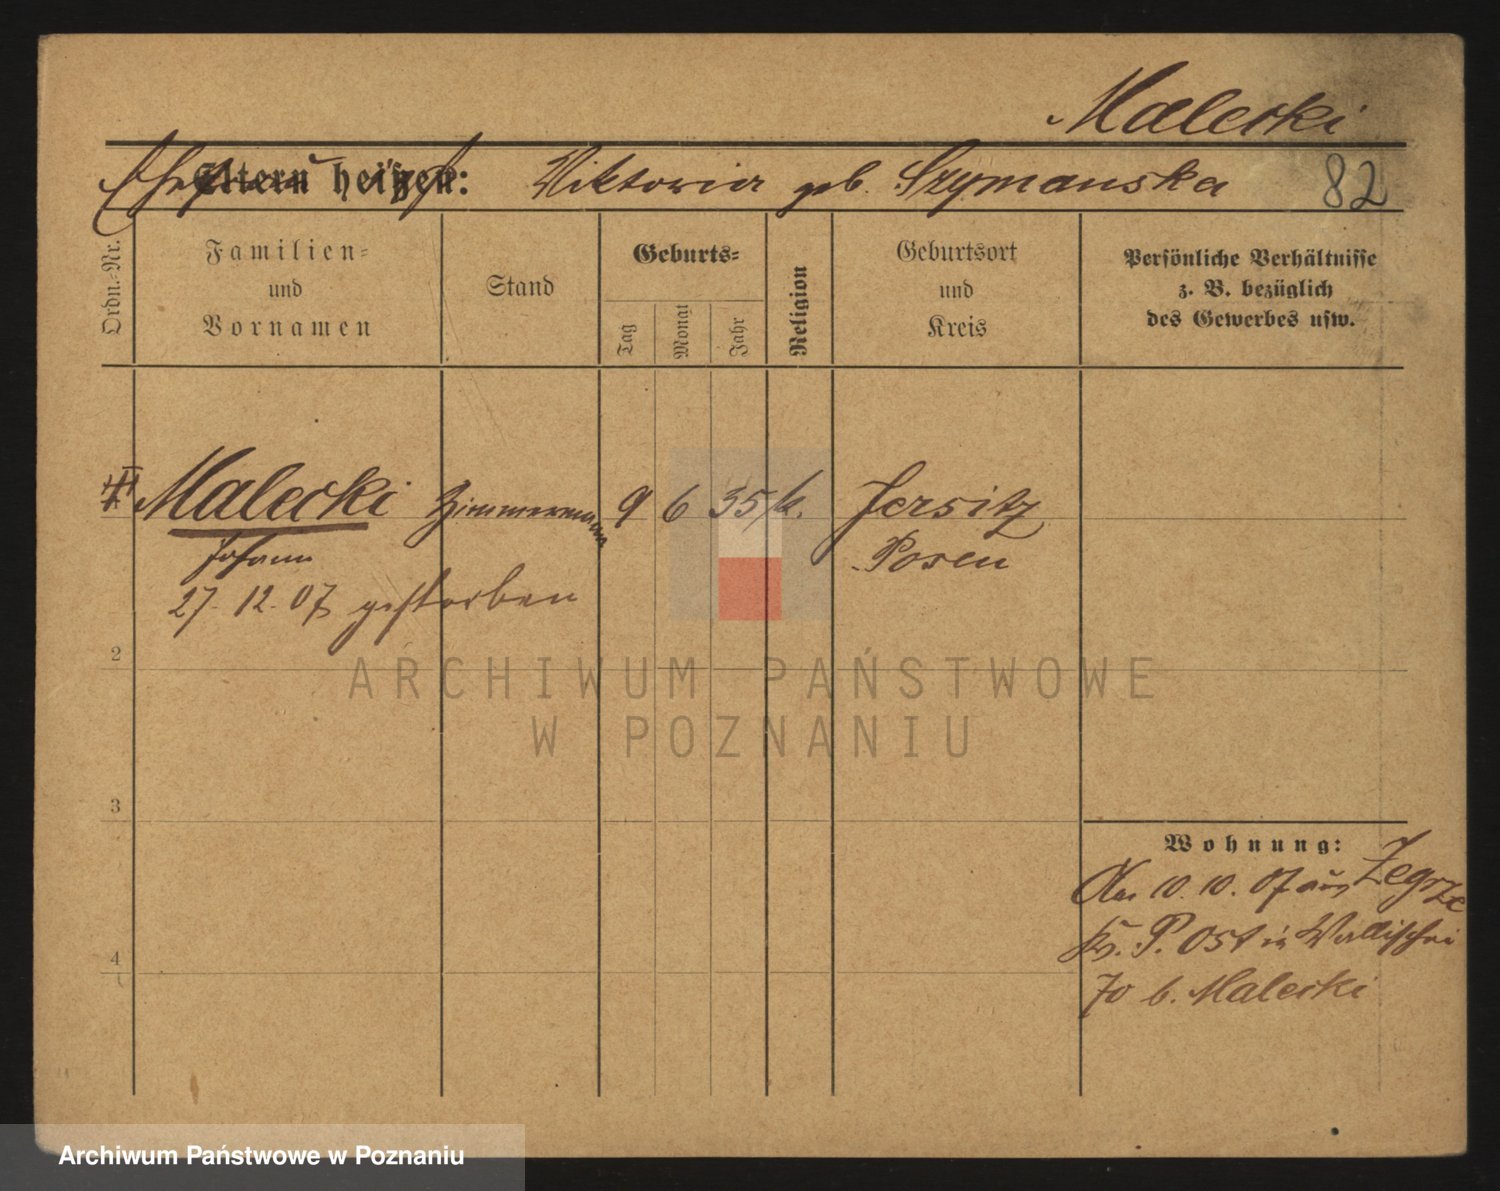 Malecki
Eltern heißen: Viktoria geb. Szymanska 82
Ordn.-Nr.
Familien-
und
Vornamen
Stand
Geburts-
Tag
Monat
Jahr
Religion
Geburtsort
und
Kreis
Persönliche Verhältnisse
z. B. bezüglich
des Gewerbes usw.
Malecki Zimmermann 9 6 35 k. Jersitz
Johann Posen
27. 12. 07 gestorben
2
3
4
Wohnung:
10. 10. 07 aus Zegrze
Kr. P. Ost in Wallischei
70 b. Malecki
ARCHIWUM PAŃSTWOWE
W POZNANIU
Archiwum Państwowe w Poznaniu